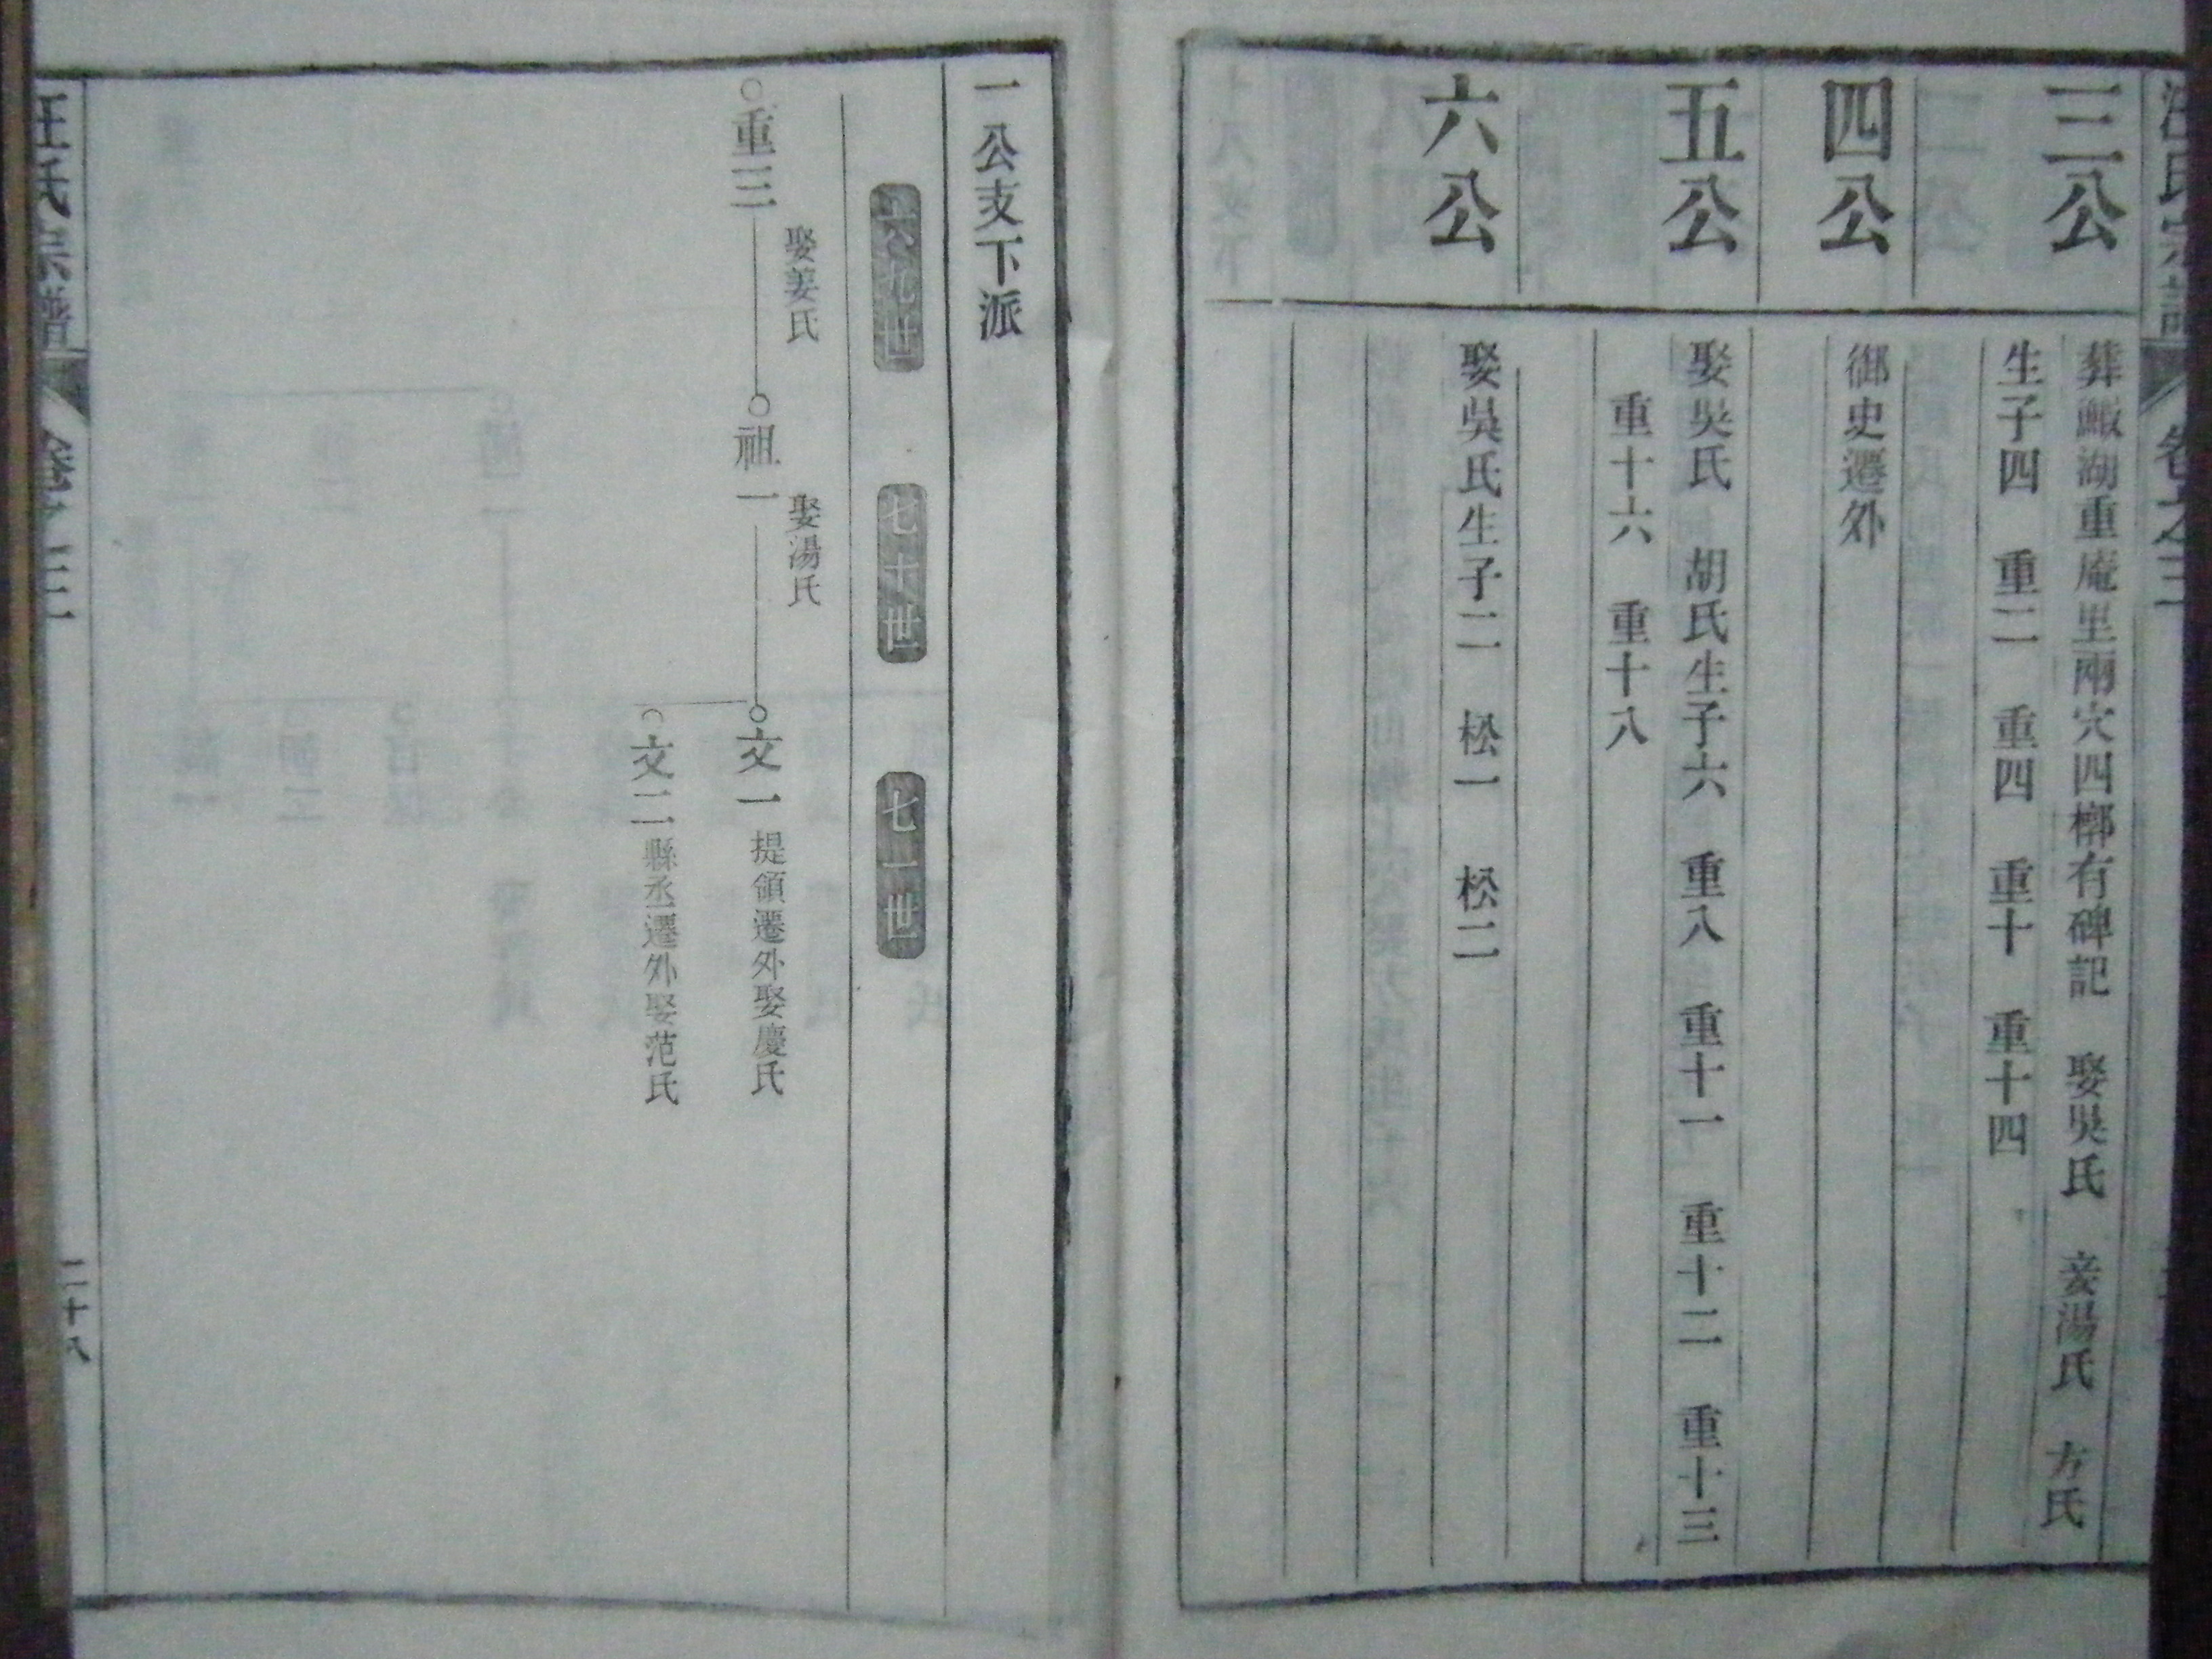 汪氏宗譜
卷之三
三公
葬鰕湖重庵里兩穴四槨有碑記 娶吳氏 妾湯氏 方氏
生子四 重二 重四 重十 重十四
四公
御史遷外
五公
娶吳氏 胡氏生子六 重八 重十一 重十二 重十三
重十六 重十八
六公
娶吳氏生子二 松一 松二
一公支下派
六九世
七十世
七一世
重三
娶姜氏
祖一
娶湯氏
文一 提領遷外娶慶氏
文二 縣丞遷外娶范氏
汪氏宗譜
卷之三
二十八